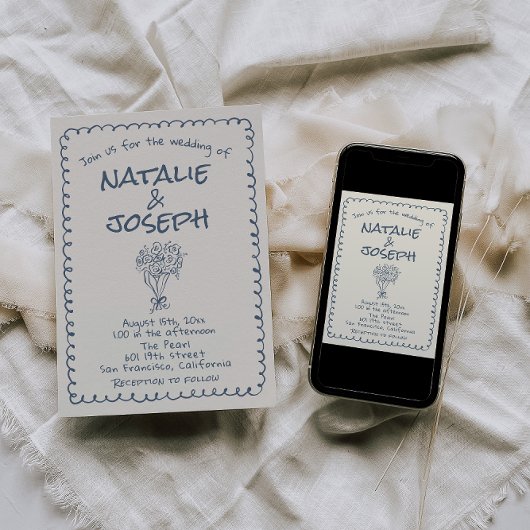 Join us for the wedding of
NATALIE
&
JOSEPH
August 15th, 20xx
1:00 in the afternoon
The Pearl
601 19th street
San Francisco, California
Reception to follow
Join us for the wedding of
NATALIE
&
JOSEPH
August 15th, 20xx
1:00 in the afternoon
The Pearl
601 19th street
San Francisco, California
Reception to follow